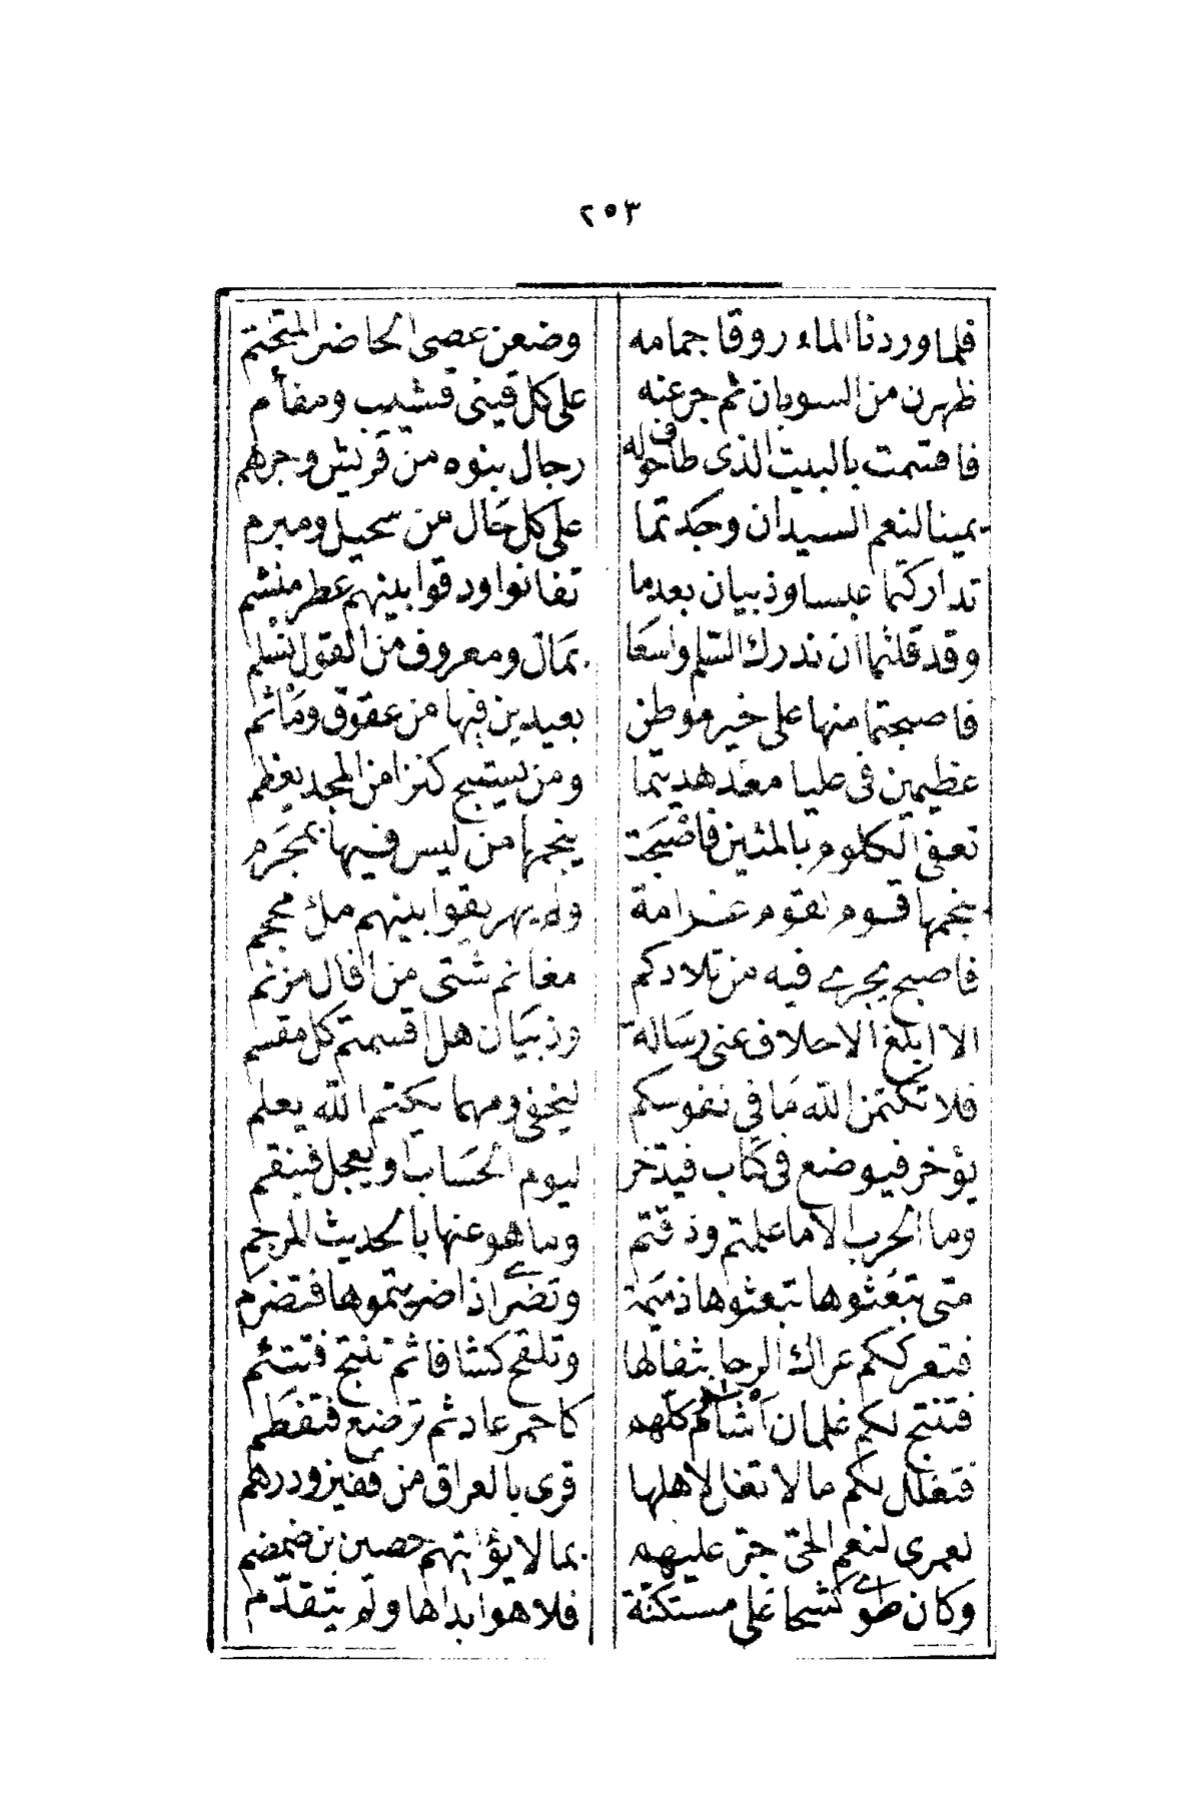 ٢٥٣
فلما وردنا الماء روقا جمامه وضعن عصى الحاضر المتختم
ظهرن من السوبان ثم جزعنه على كل قينى قشيب ومفأم
فاقسمت بالبيت الذى طاف حوله رجال بنوه من قريش وجرهم
يمينا لنعم السيدان وجدتما على كل حال من سحيل ومبرم
تداركتما عبسا وذبيان بعد ما تفانوا ودقوا بينهم عطر منشم
وقد قلتما ان ندرك السلم واسعا بمال ومعروف من القول نسلم
فاصبحتما منها على خير موطن بعيدين فيها من عقوق ومأثم
عظيمين فى عليا معد هديتما ومن يستبح كنزا من المجد يعظم
تعفى الكلوم بالمئين فاصبحت ينجمها من ليس فيها بمجرم
ينجمها قوم لقوم غرامة ولم يهريقوا بينهم ملء محجم
فاصبح يجرى فيه من تلادكم مغانم شتى من افال مزنم
الا ابلغ الاحلاف عنى رسالة وذبيان هل اقسمتم كل مقسم
فلا تكتمن الله ما فى نفوسكم ليخفى ومهما يكتم الله يعلم
يؤخر فيوضع فى كتاب فيدخر ليوم الحساب او يعجل فينقم
وما الحرب الا ما علمتم وذقتم وما هو عنها بالحديث المرجم
متى تبعثوها تبعثوها ذميمة وتضرى اذا ضريتموها فتضرم
فتعرككم عراك الرحا بثفالها وتلقح كشافا ثم تنتج فتتئم
فتنتج لكم غلمان اشأم كلهم كاحمر عاد ثم ترضع فتفطم
فتغلل لكم ما لا تغل لاهلها قرى بالعراق من قفيز ودرهم
لعمرى لنعم الحى جر عليهم بما لا يؤاتيهم حصين بن ضمضم
وكان طوى كشحا على مستكنة فلا هو ابداها ولم يتقدم